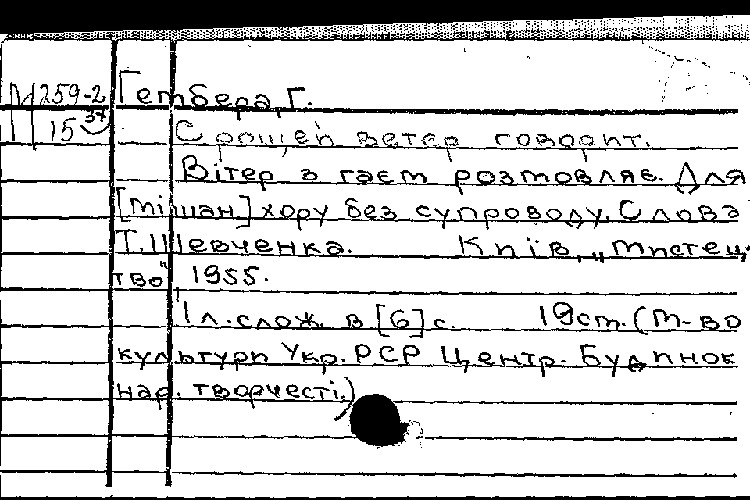 М 259-2 Гембера, Г.
15 37 С рощей ветер говорит.
Вітер з гаєм розмовляє. Для
[мішан] хору без супроводу. Слова
Т. Шевченка. Київ, "Мистец-
тво", 1955.
1 л. слож. в [6] с. 19 см. (М-во
культури Укр. РСР Центр. Будинок
нар. творчесті.)